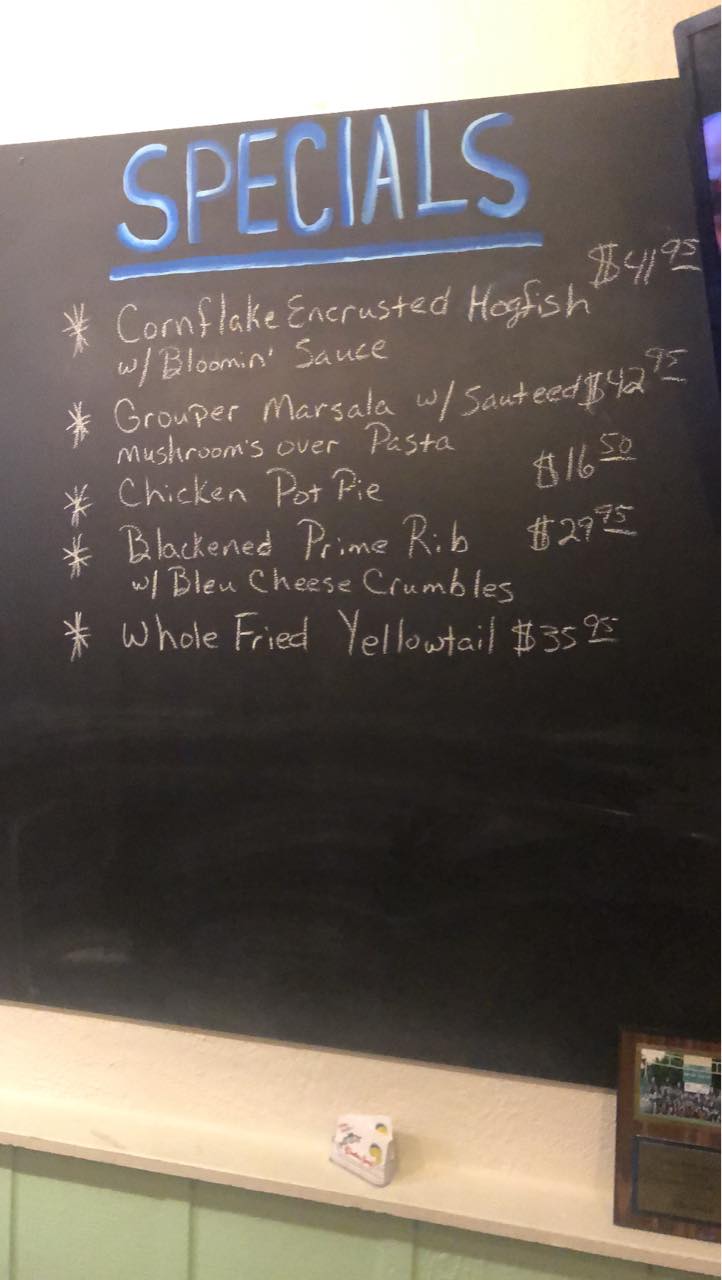 SPECIALS
* Cornflake Encrusted Hogfish $41 95
w/ Bloomin' Sauce
* Grouper Marsala w/ Sauteed $42 95
mushroom's over Pasta
* Chicken Pot Pie $16 50
* Blackened Prime Rib $29 95
w/ Bleu Cheese Crumbles
* Whole Fried Yellowtail $35 95